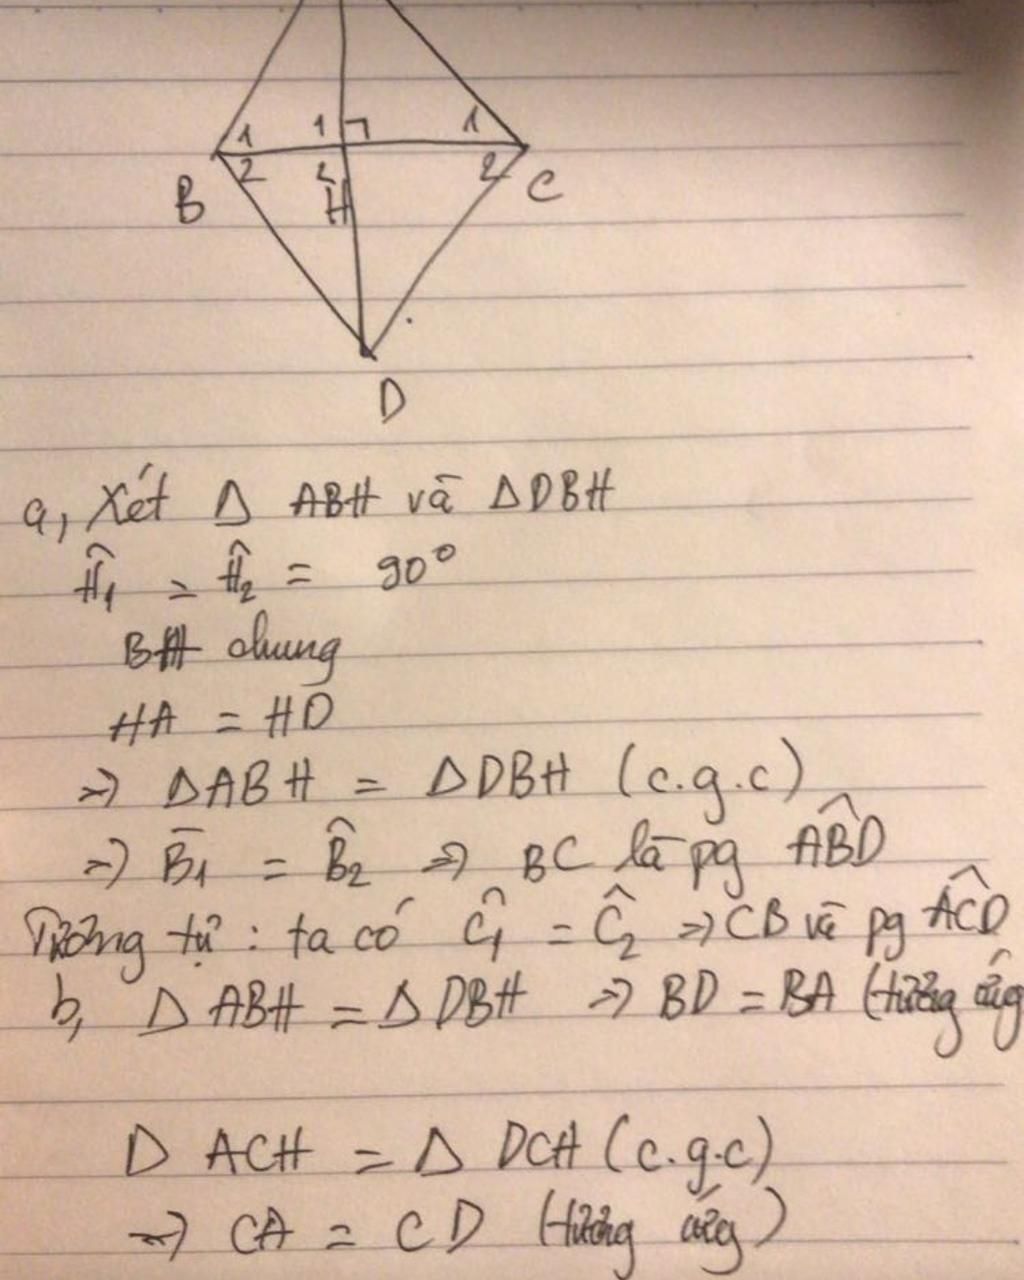 1 1 1
B 2 2 H 2 C
D
a, Xét Δ ABH và ΔDBH
Ĥ₁ = Ĥ₂ = 90°
BH chung
HA = HD
=> ΔABH = ΔDBH (c.g.c)
=> B̄₁ = B̂₂ => BC là pg ABD̂
Tương tự : ta có Ĉ₁ = Ĉ₂ => CB là pg ACD̂
b, Δ ABH = Δ DBH => BD = BA (tương ứng
Δ ACH = Δ DCH (c.g.c)
=> CA = CD (tương ứng)